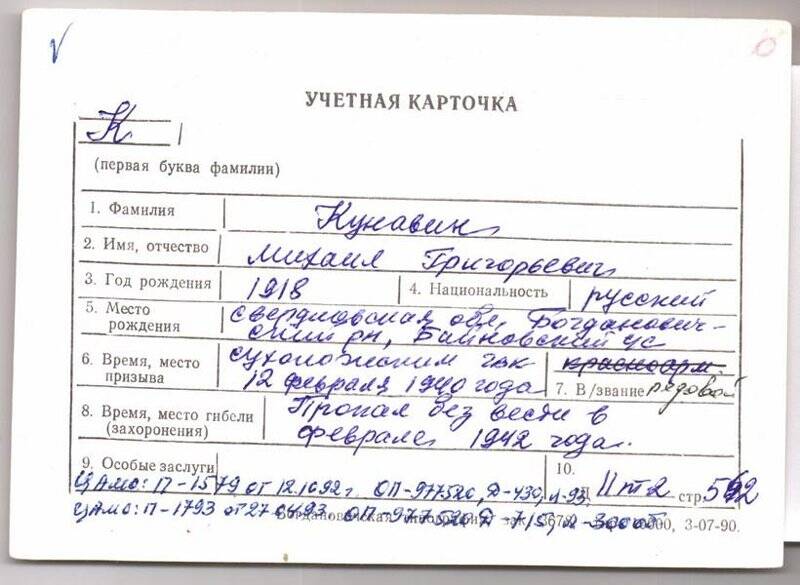 УЧЕТНАЯ КАРТОЧКА
К
(первая буква фамилии)
1. Фамилия Кунавин
2. Имя, отчество Михаил Григорьевич
3. Год рождения 1918 4. Национальность русский
5. Место рождения Свердловская обл, Богданович-
ский рн, Байновский с/с
6. Время, место призыва Сухоложским гвк
12 февраля 1940 года
красноарм.
7. В/звание рядовой
8. Время, место гибели (захоронения) Пропал без вести в
феврале 1942 года.
9. Особые заслуги
10.
ЦАМО: П-1579 от 12.10.92 г. ОП-977520, Д-430, л-93, II т 2 стр 562
ЦАМО: П-1793 от 270493 ОП-977520 Д-715, л-
Богдановичская типография зак. 3-07-90.